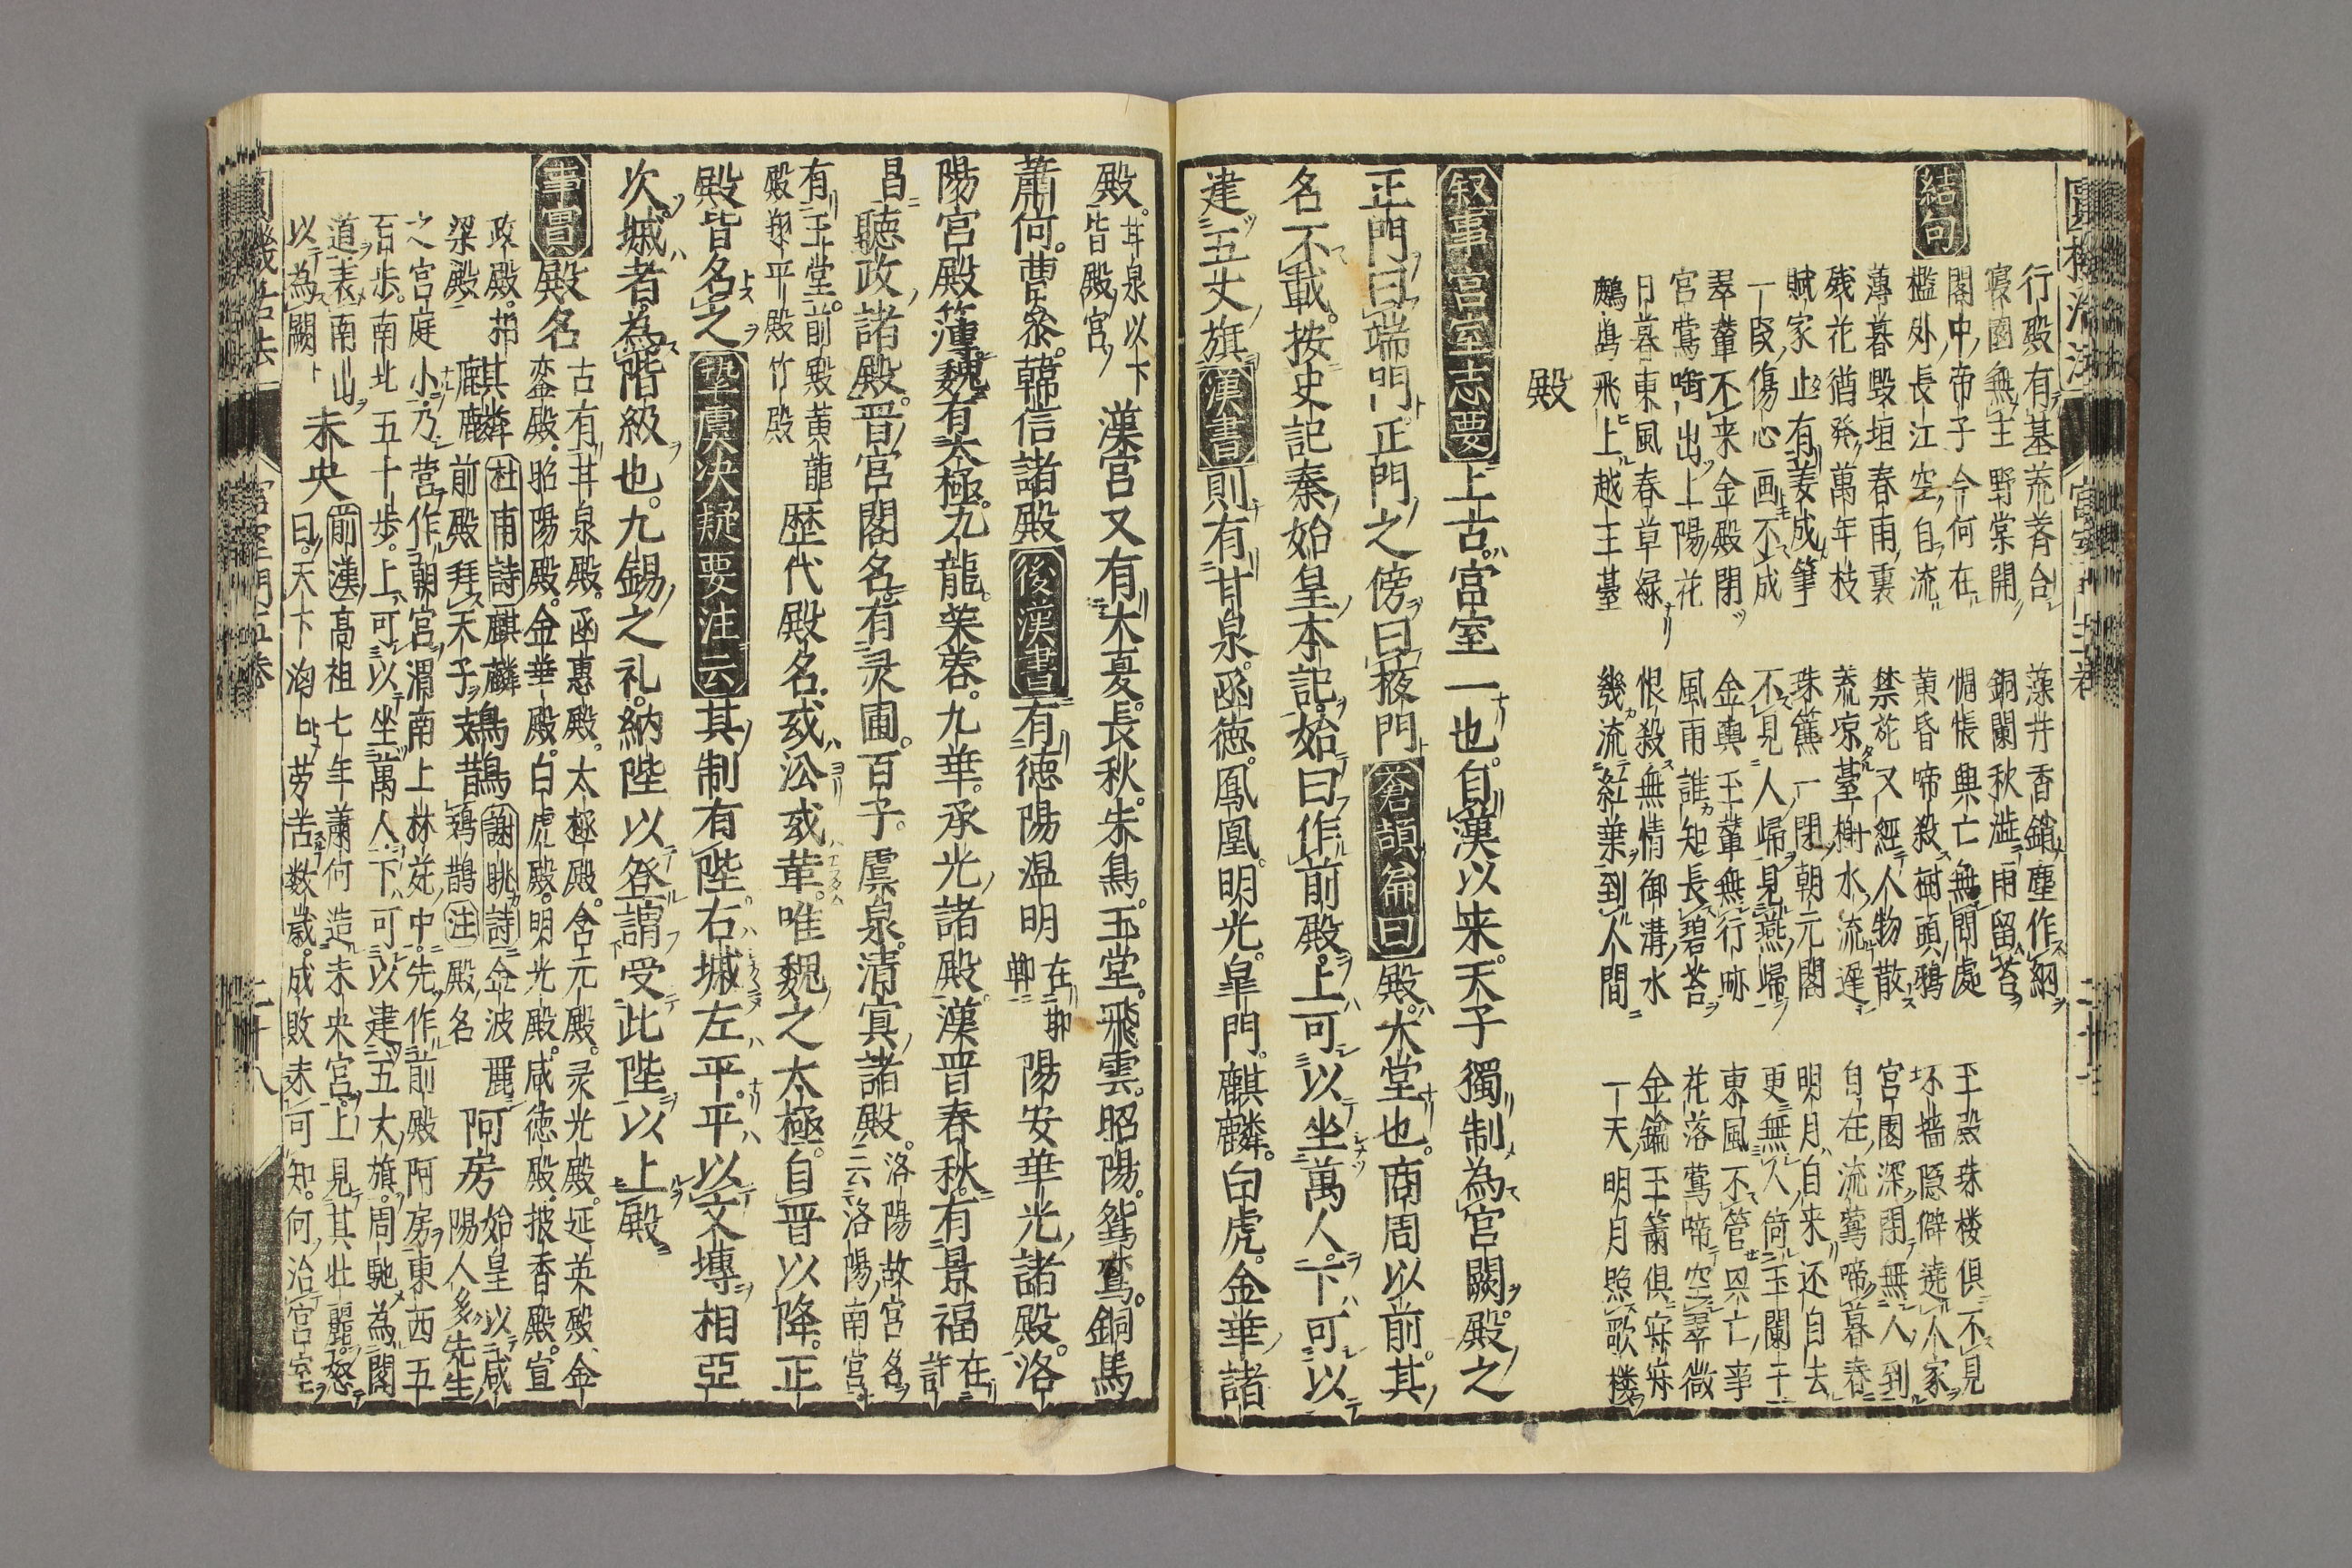 圓機活法 宮室門五巻 二十
行殿有基荒薺合 藻井香鎖塵作網
寝園無主野棠開 銅闌秋澁雨留苔 玉殿珠楼倶不見
閣中帝子今何在 惆悵興亡無問處 坏墻隠僻遶人家
結句
檻外長江空自流 黄昏啼殺樹頭鴉 宮園深閉無人到
薄暮毀垣春雨裏 禁苑又經人物散 自在流鶯啼暮春
残花猶発萬年枝 荒凉臺榭水流遅 明月自来还自去
賦家止有姜成筆 珠簾一閉朝元閣 更無人倚玉闌干
一段傷心画不成 不見人帰見燕帰 東風不管興亡事
翠輦不来金殿閉 金輿玉輦無行跡 花落鶯啼空翠微
宮鶯啣出上陽花 風雨誰知長碧苔 金鑰玉簫倶寂寂
日暮東風春草緑 恨殺無情御溝水 一天明月照歌楼
鷓鴣飛上越王臺 幾流紅葉到人間
殿
叙事宮室志要 上古宮室一也。自漢以来。天子獨制為宮闕。殿之
正門曰端門。正門之傍曰掖門 蒼頡篇曰 殿。大堂也。商周以前。其
名不載。按史記秦始皇本記。始曰作前殿。上可以坐萬人。下可以
建五丈旗 漢書 則有甘泉。函徳。鳳凰。明光。皐門。麒麟。白虎。金華諸
殿。甘泉以下皆殿宮 漢宮又有大夏。長秋。朱鳥。玉堂。飛雲。昭陽。鴛鴦。銅馬
蕭何。曹参。韓信諸殿 後漢書 有徳陽温明 陽安華光。諸殿。洛
陽宮殿簿魏有太極。九龍。芙蓉。九華。承光諸殿。漢晋春秋。有景福在許
昌聴政諸殿。晋宮閣名。有灵圃。百子。虞泉。清寘諸殿。洛陽故宮名云洛陽南宮
有玉堂。前殿黄龍殿翔平殿竹殿 歴代殿名。或沿或革。唯魏之太極。自晋以降。正
殿皆名之 摯虞决疑要注云 其制有陛。右墄左平。平以文塼相亞
次。墄者。為階級也。九錫之礼。納陛以登。謂受此陛以上殿
事實 殿名 古有甘泉殿。函惠殿。太極殿。含元殿。灵光殿。延英殿。金
鑾殿。昭陽殿。金華殿。白虎殿。明光殿。咸徳殿。披香殿。宣
政殿。 麒麟 杜甫詩 麒麟 鳷鵲 謝眺詩 金波麗 阿房 始皇以咸
梁殿 前殿拜天子 鳷鵲 注 殿名 陽人多先生
之宮庭小乃営作朝宮渭南上林苑中。先作前殿阿房東西五
百歩。南北五十歩。上可以坐萬人下可以建五大旗。周馳為閣
道表南山 未央 前漢 高祖七年蕭何造未央宮。上見其壮麗。怒
以為闕 曰。天下 労苦数歳。成敗未可知。何治宮室
圓機活法 宮室門五巻 二十八